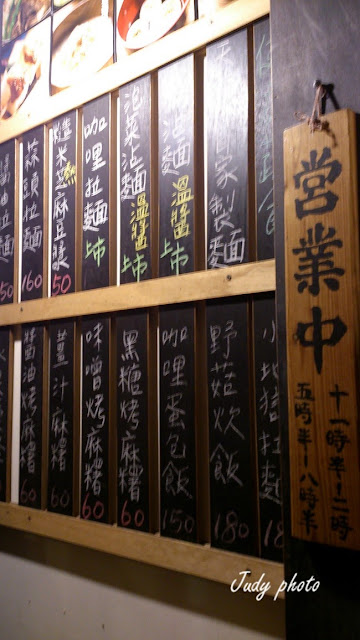 營業中
十一時半-二時
五時半-八時半
家製麵
油麵 溫醬 上市
泡菜沾麵 溫醬 上市
咖哩拉麵 上市
糙米芝麻豆漿 熱 50
蒜頭拉麵 160
醬油拉 50
地獄拉麵 18
野菇炊飯 180
咖哩蛋包飯 150
黑糖烤麻糬 60
味噌烤麻糬 60
薑汁麻糬 60
醬油烤麻糬 60
Judy photo